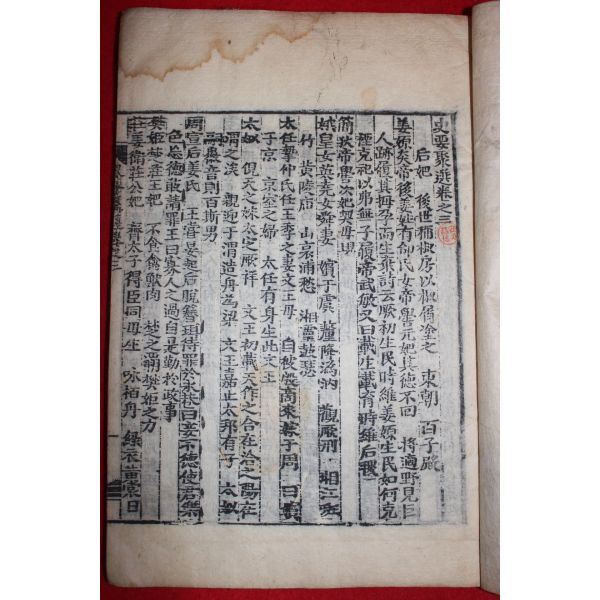 史要聚選卷之三
后妃 後世稱椒房以椒屑塗之 東朝 百子殿
姜嫄炎帝後姜姓有邰氏女帝嚳元妃其德不回 將適野見巨
人跡履其拇孕而生棄詩云厥初生民時維姜嫄生民如何克
禋克祀以弗無子履帝武敏又曰載生載育時維后稷
簡狄帝嚳次妃契母
娥皇女英堯女舜妻 嬪于虞 釐降溈汭 觀厥刑 湘江
竹 黃陵廟 山哀浦愁 湘靈鼓瑟
太任摯仲氏任王季之妻文王母 自彼殷商來嫁于周 曰嬪
于京 京室之婦 太任有身生此文王
太姒 俔天之妹太姒厥祥 文王初載天作之合在洽之陽在
渭之涘 親迎于渭造舟爲梁 文王嘉止大邦有子 太姒
嗣徽音則百斯男
周宣后姜氏 王嘗晏起后脫簪珥待罪於永巷曰妾不德使君樂
色忘德敢請罪王曰寡人之過自是勤於政事
樊姬楚莊王妃 不食禽獸肉 楚之霸樊姬之力
莊姜衛莊公妃 齊太子得臣同母妹 咏柏舟 綠衣黃裳日